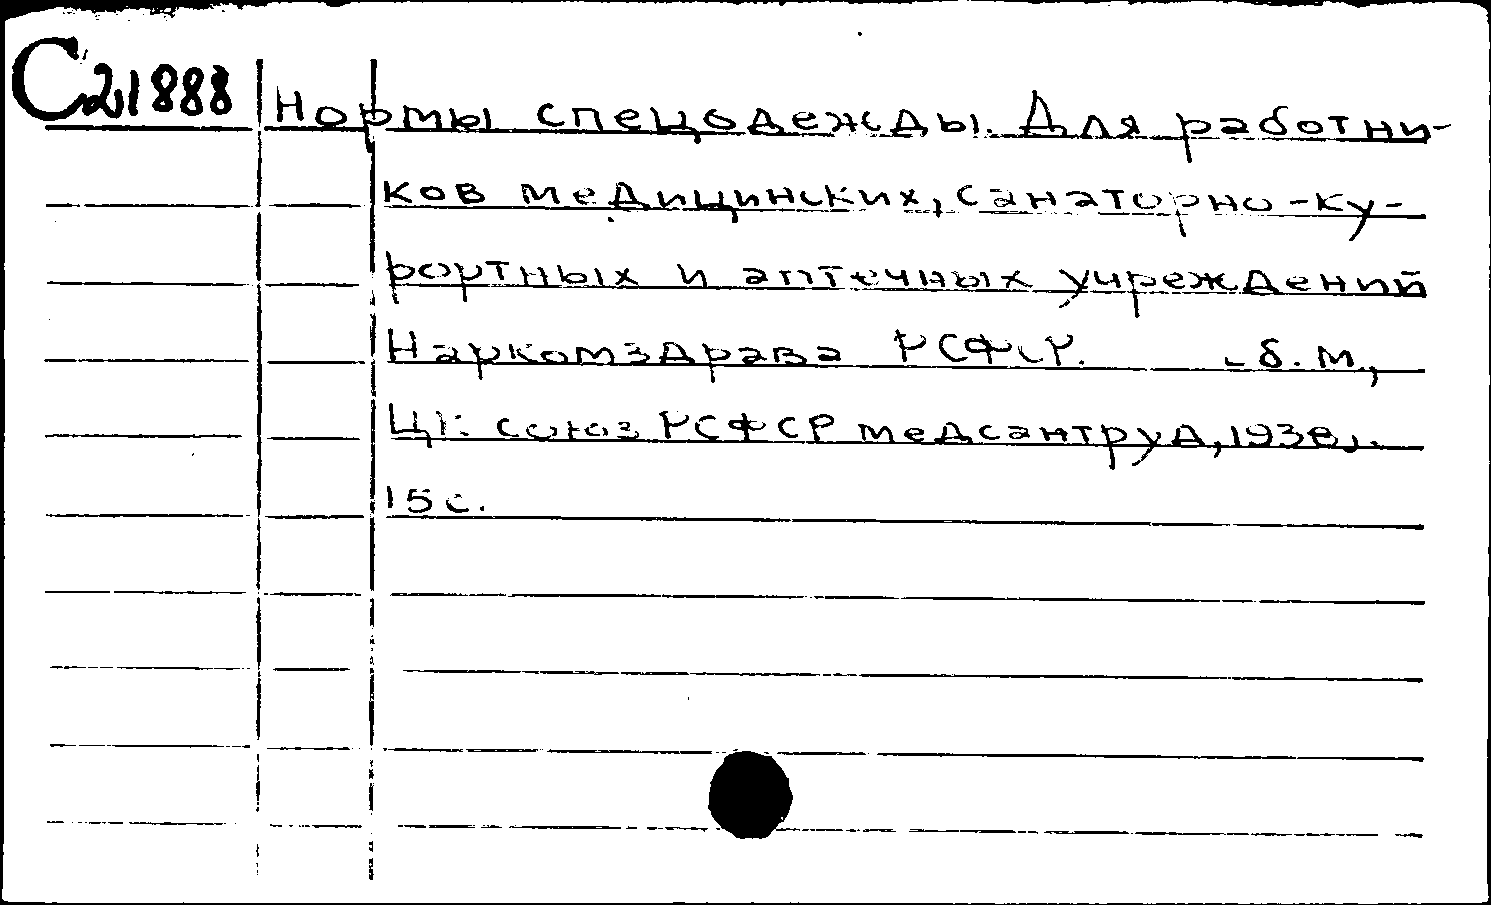 С21888
Нормы спецодежды. Для работни-
ков медицинских, санаторно-ку-
рортных и аптечных учреждений
Наркомздрава РСФСР. б. м.,
ЦК союз РСФСР медсантруд,
15 с.